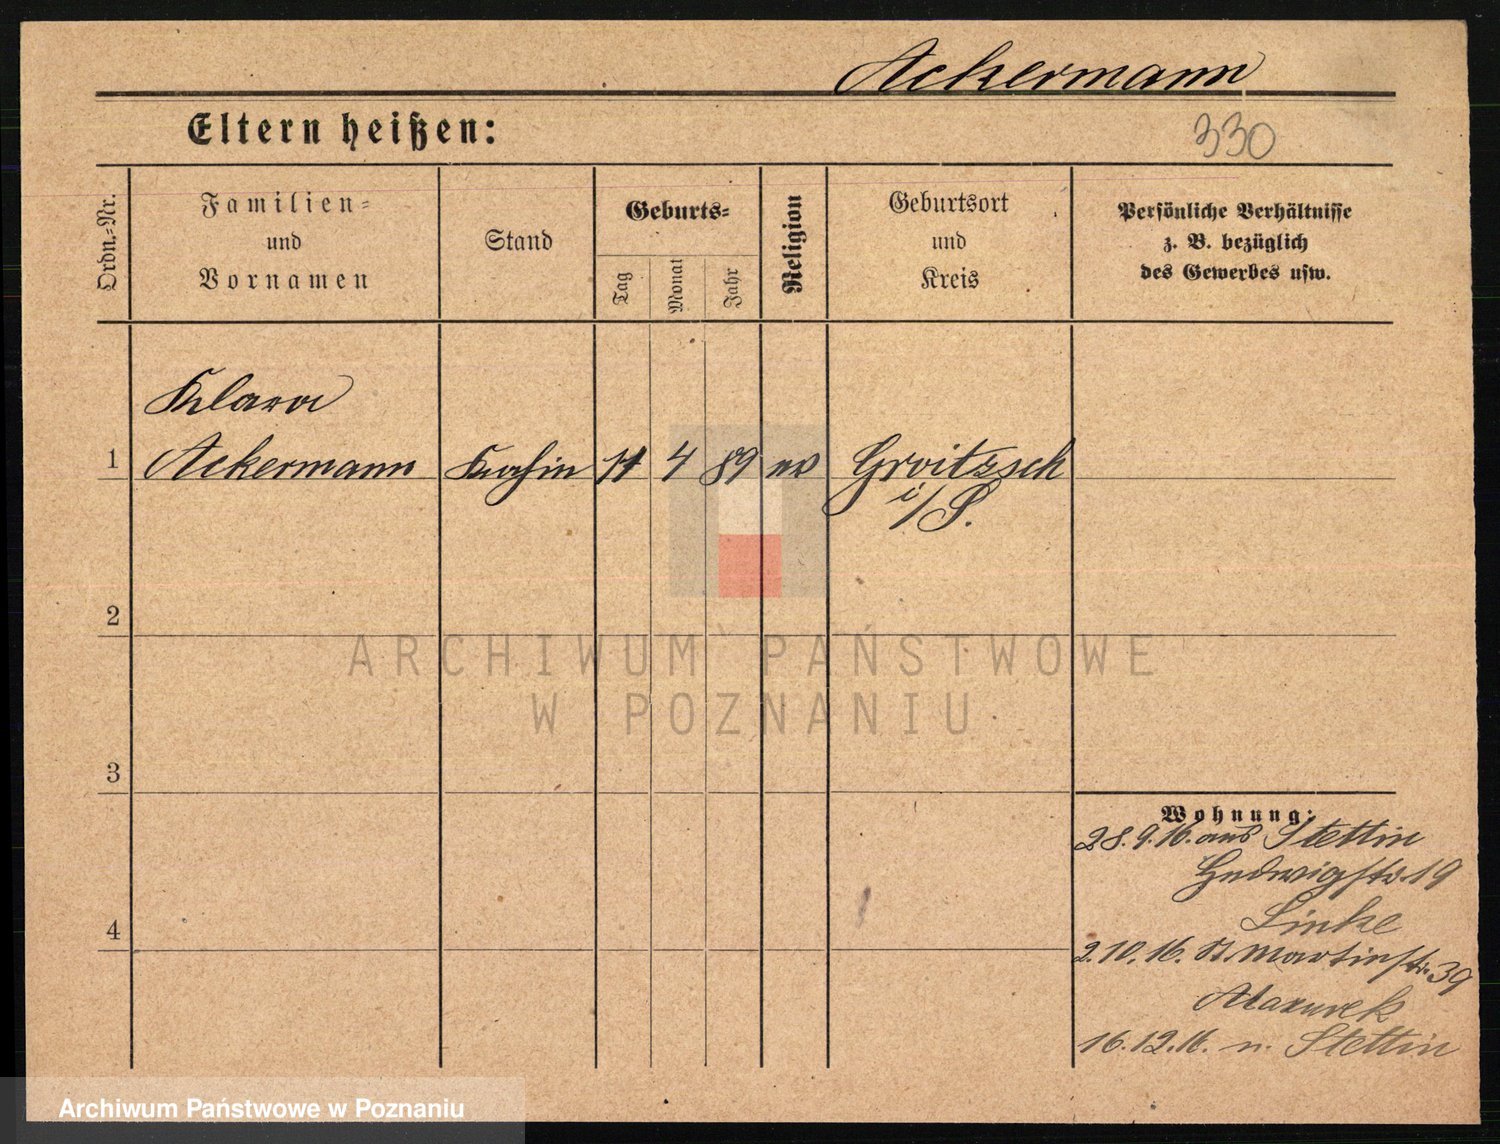 Ackermann
Eltern heißen:
330
Ordn.-Nr.
Familien-
und
Vornamen
Stand
Geburts-
Tag
Monat
Jahr
Religion
Geburtsort
und
Kreis
Persönliche Verhältnisse
z. B. bezüglich
des Gewerbes usw.
Klara
1 Ackermann 11 4 89 ev Groitzsch
i/S.
2
3
4
Wohnung:
28.9.16. aus Stettin
Hedwigstr. 19
Linke
2.10.16. St. Martinstr. 39
Mazurek
16.12.16. n. Stettin
ARCHIWUM PAŃSTWOWE
W POZNANIU
Archiwum Państwowe w Poznaniu